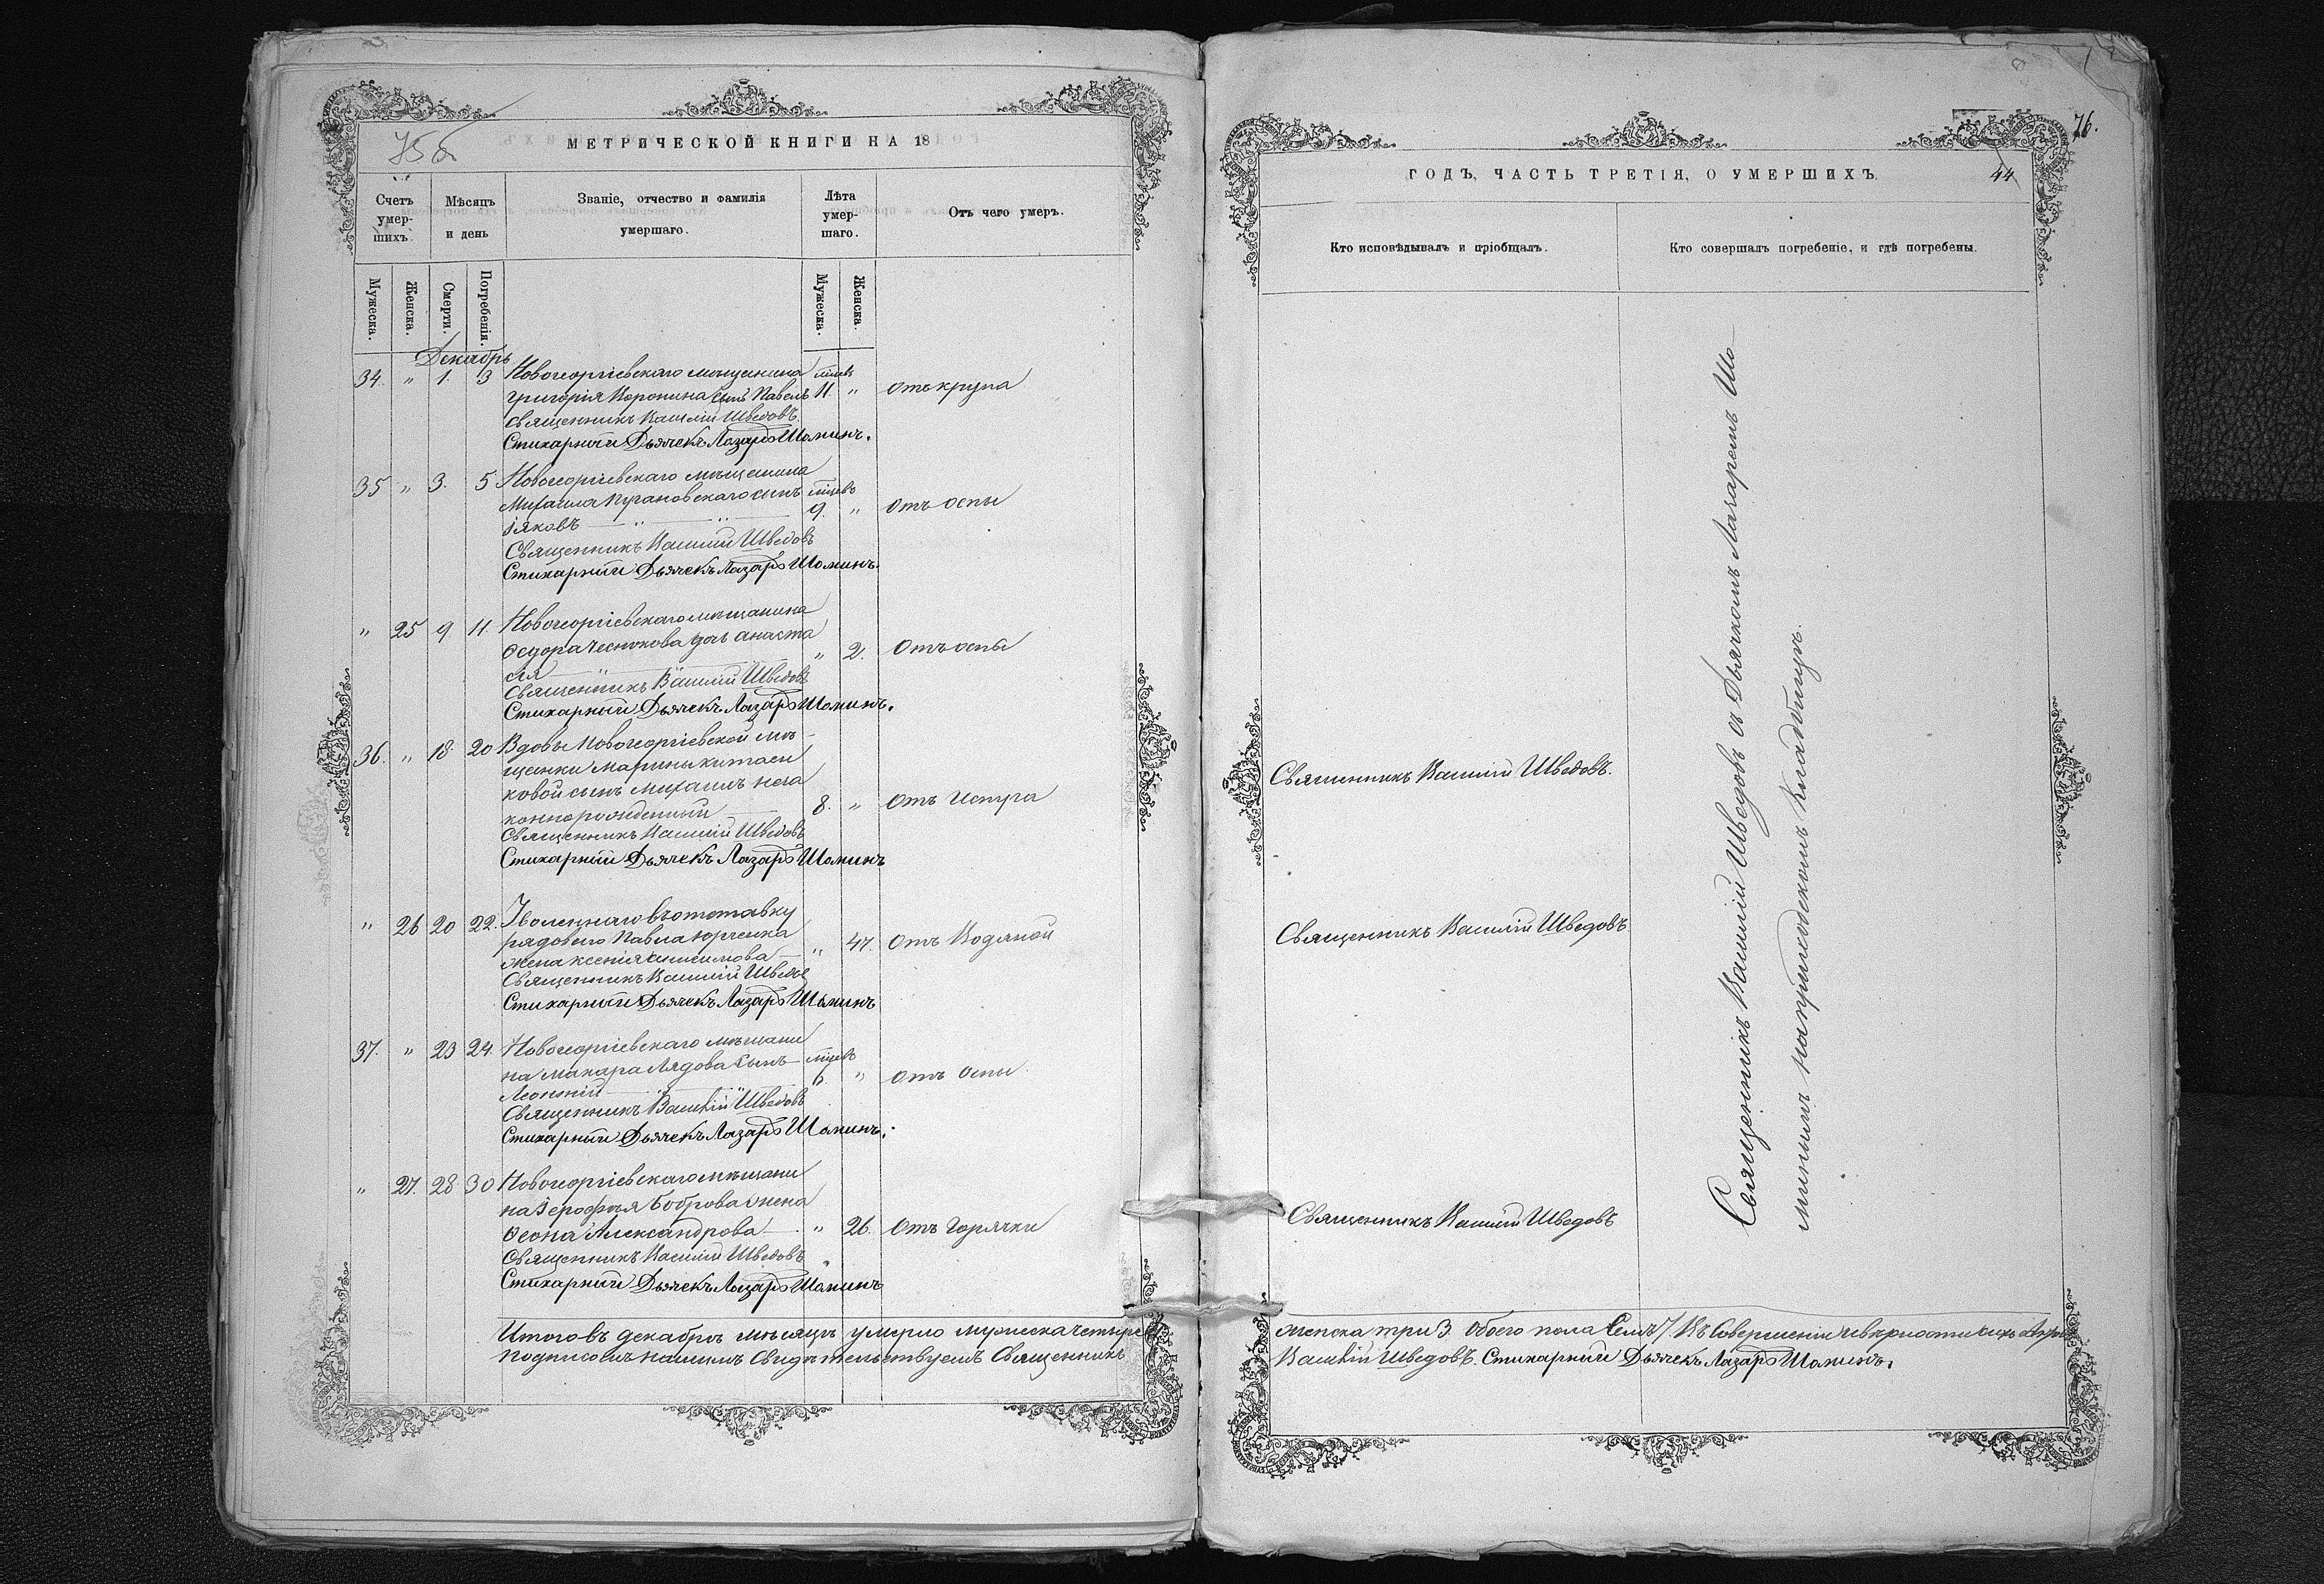 75б
МЕТРИЧЕСКОЙ КНИГИ НА 18
Счетъ умерших.
Мѣсяцъ и день
Званіе, отчество и фамилія умершаго.
Лѣта умершаго.
Отъ чего умеръ.
Мужеска.
Женска.
Смерти.
Погребенія.
Мужеска.
Женска.
Декабрь
34. " 1. 3 Новогеоргіевскаго мѣщанина мѣсев
Григорія Воронина сынъ Павелъ 11. " отъ крупа
Священникъ Василій Шведовъ
Стихарный Дьячекъ Лазарь Шаминъ.
35 " 3. 5 Новогеоргіевскаго мѣщанина
Михаила сынъ мѣсев
Іяковъ — " — " — 9. " отъ оспы
Священникъ Василій Шведовъ
Стихарный Дьячекъ Лазарь Шаминъ.
" 25 9. 11. Новогеоргіевскаго мѣщанина
Ѳедора Чеснокова дочь Анаста
сія — " — " 2. Отъ оспы
Священникъ Василій Шведовъ
Стихарный Дьячекъ Лазарь Шаминъ.
36. " 18. 20 Вдовы Новогеоргіевской мѣ-
щанки Марины
ковой сынъ Михаилъ неза
коннорожденный — 8. "
Священникъ Василій Шведовъ
Стихарный Дьячекъ Лазарь Шаминъ
" 26 20 22. Уволеннаго въ отставку
рядового Павла Юрченка
жена Ксенія — " 47. Отъ Водяной
Священникъ Василій Шведов
Стихарный Дьячекъ Лазарь Шаминъ
37. " 23 24. Новогеоргіевскаго мѣщани
на Макара Лядова сынъ — мѣсев
— " — 6. " отъ Оспы
Священникъ Василій Шведовъ
Стихарный Дьячекъ Лазарь Шаминъ.
" 27. 28 30 Новогеоргіевскаго мѣщани
на Боброва жена
Александрова — " 26. Отъ Горячки
Священникъ Василій Шведовъ
Стихарный Дьячекъ Лазарь Шаминъ
Итого въ декабрѣ мѣсяцѣ умерло мужеска четыре
подписомъ нашимъ Свидѣтельствуемъ Священникъ
76.
ГОДЪ, ЧАСТЬ ТРЕТІЯ, О УМЕРШИХЪ.
44
Кто исповѣдывалъ и пріобщалъ.
Кто совершалъ погребеніе, и гдѣ погребены.
Священникъ Василій Шведовъ.
Священникъ Василій Шведовъ
Священникъ Василій Шведовъ
Священникъ Василій Шведовъ съ Дьячкомъ Лазаремъ Ша-
минымъ на приходскомъ Кладбищѣ.
женска три 3. Обоего пола Семь 7. Въ Совершеніи
Василій Шведовъ. Стихарный Дьячекъ Лазарь Шаминъ.